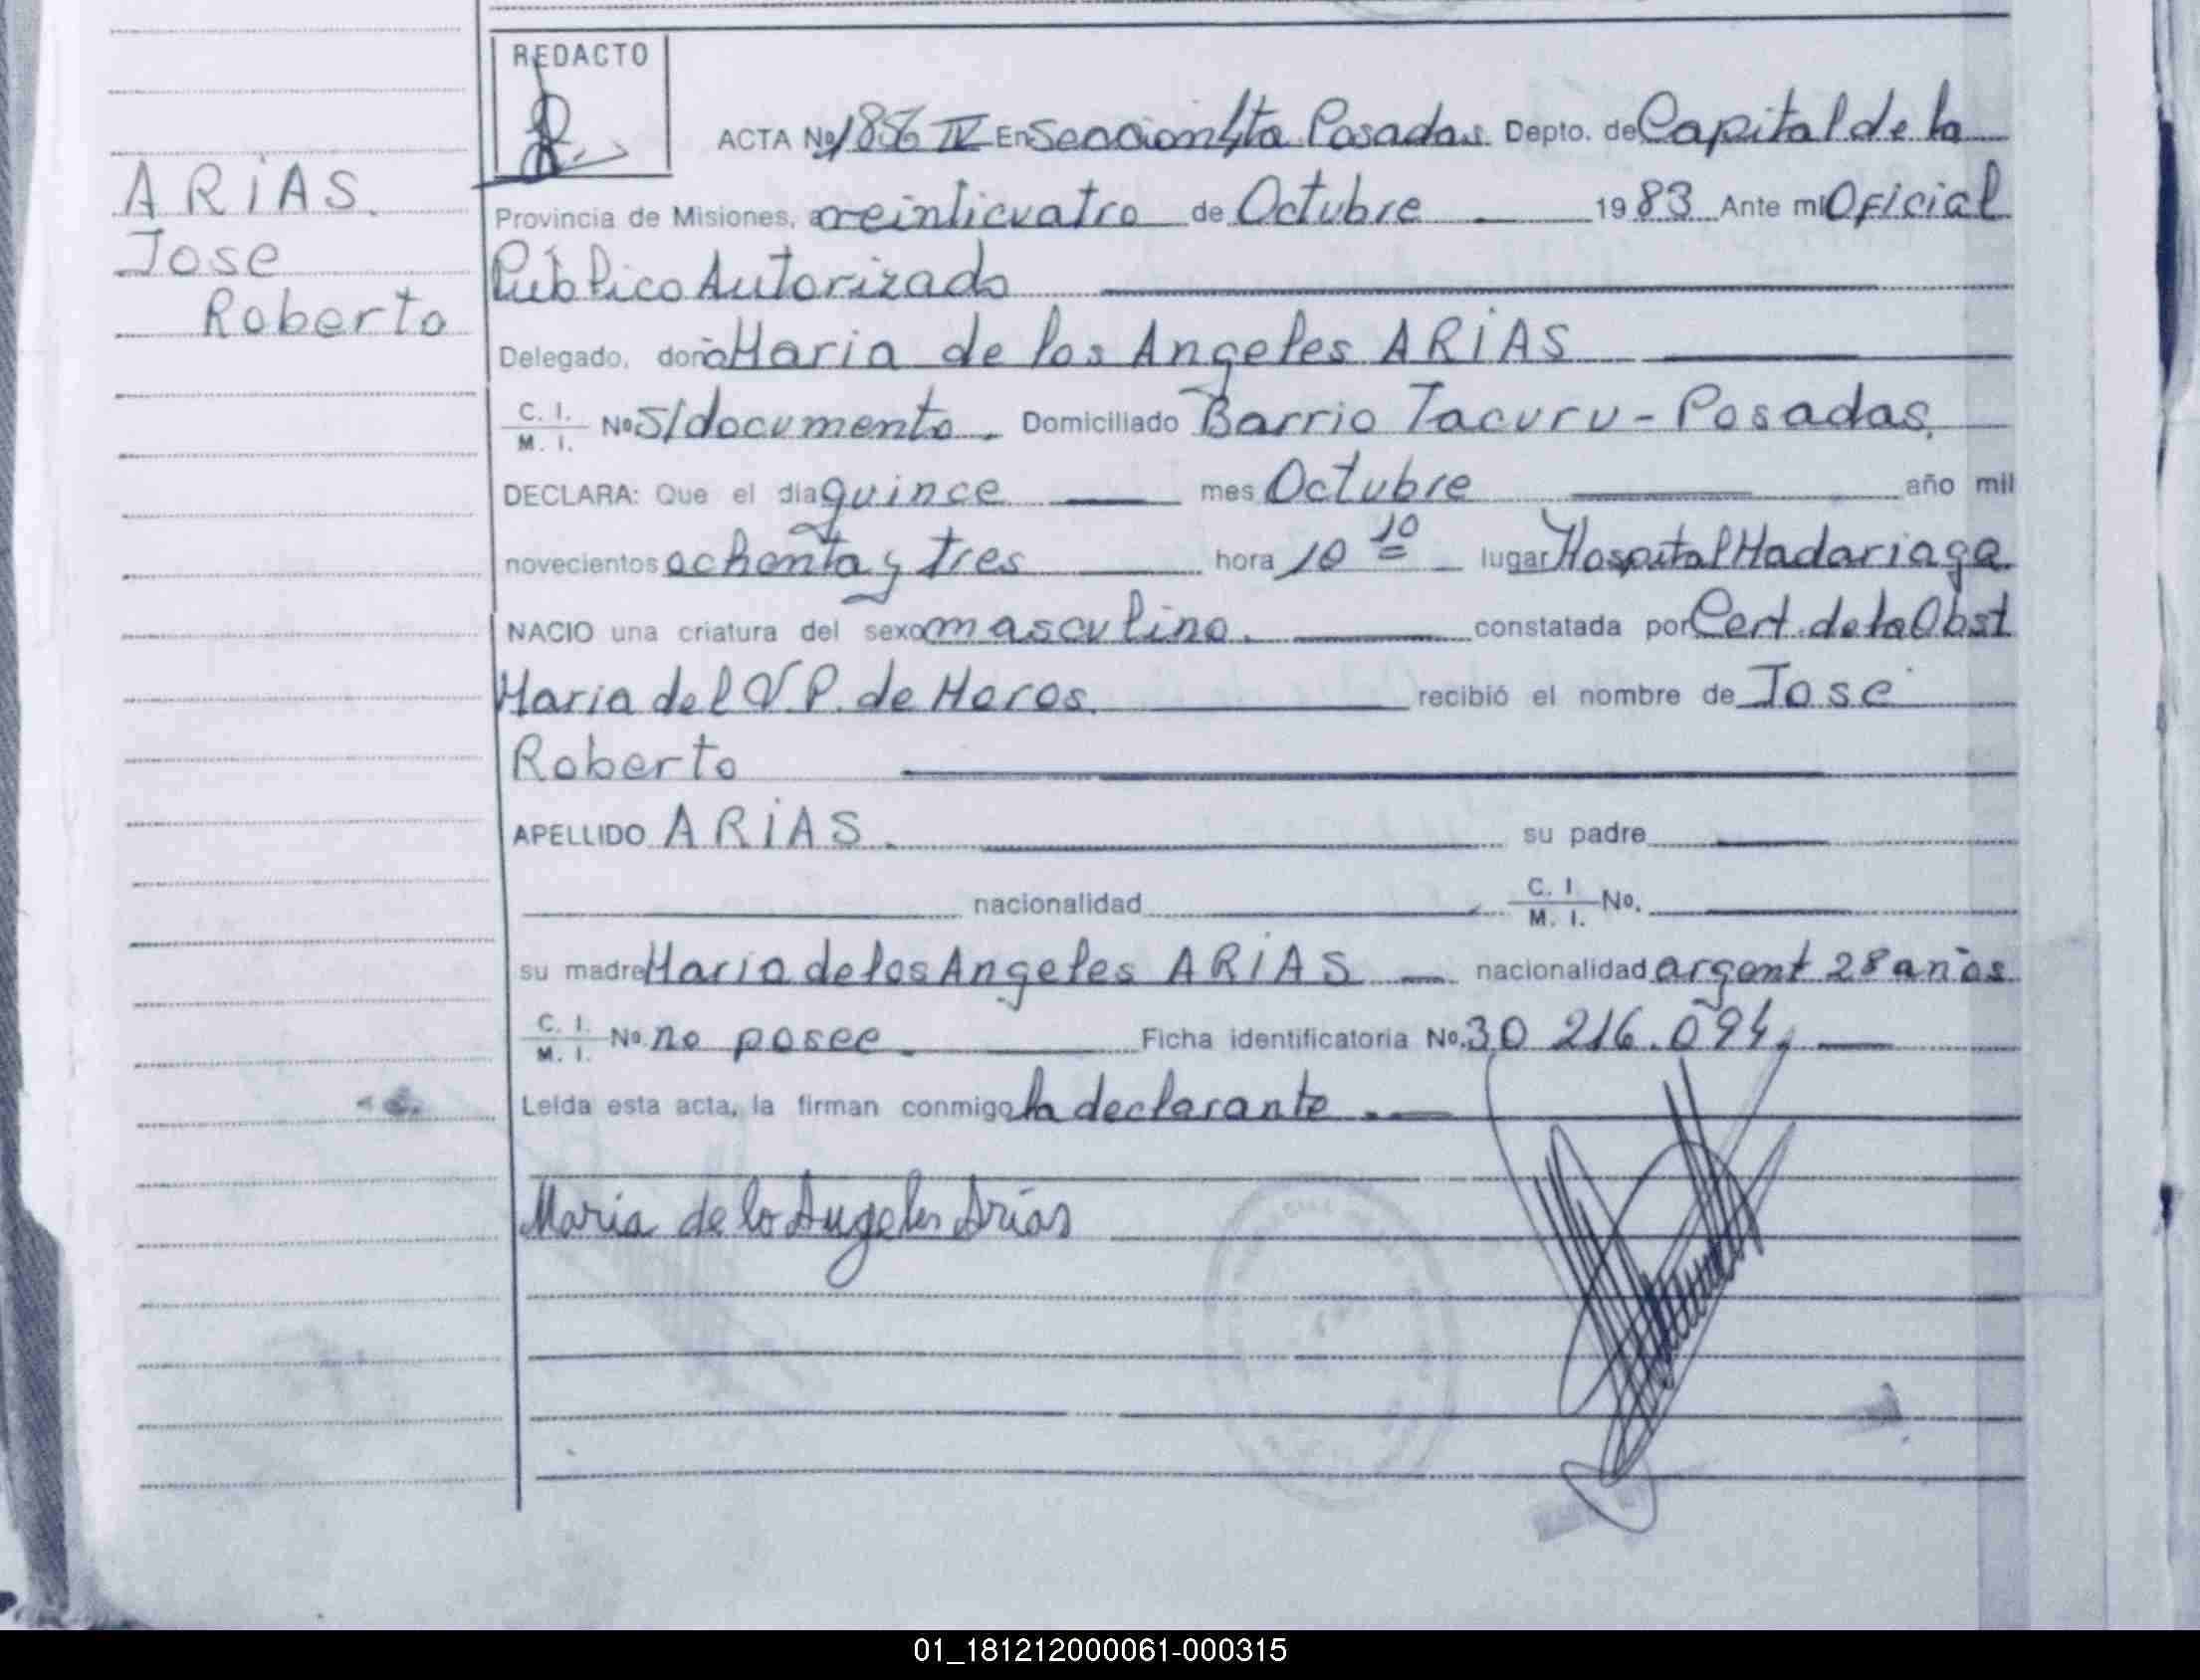 REDACTO
ACTA Nº 1856 IV En Sección 4ta Posadas Depto. de Capital de la
ARIAS.
Jose
Roberto
Provincia de Misiones, a veinticuatro de Octubre 1983 Ante mi Oficial
Público Autorizado
Delegado, doña Maria de los Angeles ARIAS
C. I. / M. I. Nº S/documento. Domiciliado Barrio Tacuru - Posadas.
DECLARA: Que el día quince mes Octubre año mil
novecientos ochenta y tres hora 10 10 lugar Hospital Madariaga
NACIO una criatura del sexo masculino. constatada por Cert. de la Obst
Maria del V. P. de Meros. recibió el nombre de José
Roberto
APELLIDO ARIAS. su padre
nacionalidad C. I / M. I. Nº.
su madre Maria de los Angeles ARIAS nacionalidad argent 28 años
C. I. / M. I. Nº. no posee. Ficha identificatoria Nº. 30 216.094,
Leída esta acta, la firman conmigo la declarante.
Maria de lo Angeles Arias
01_181212000061-000315